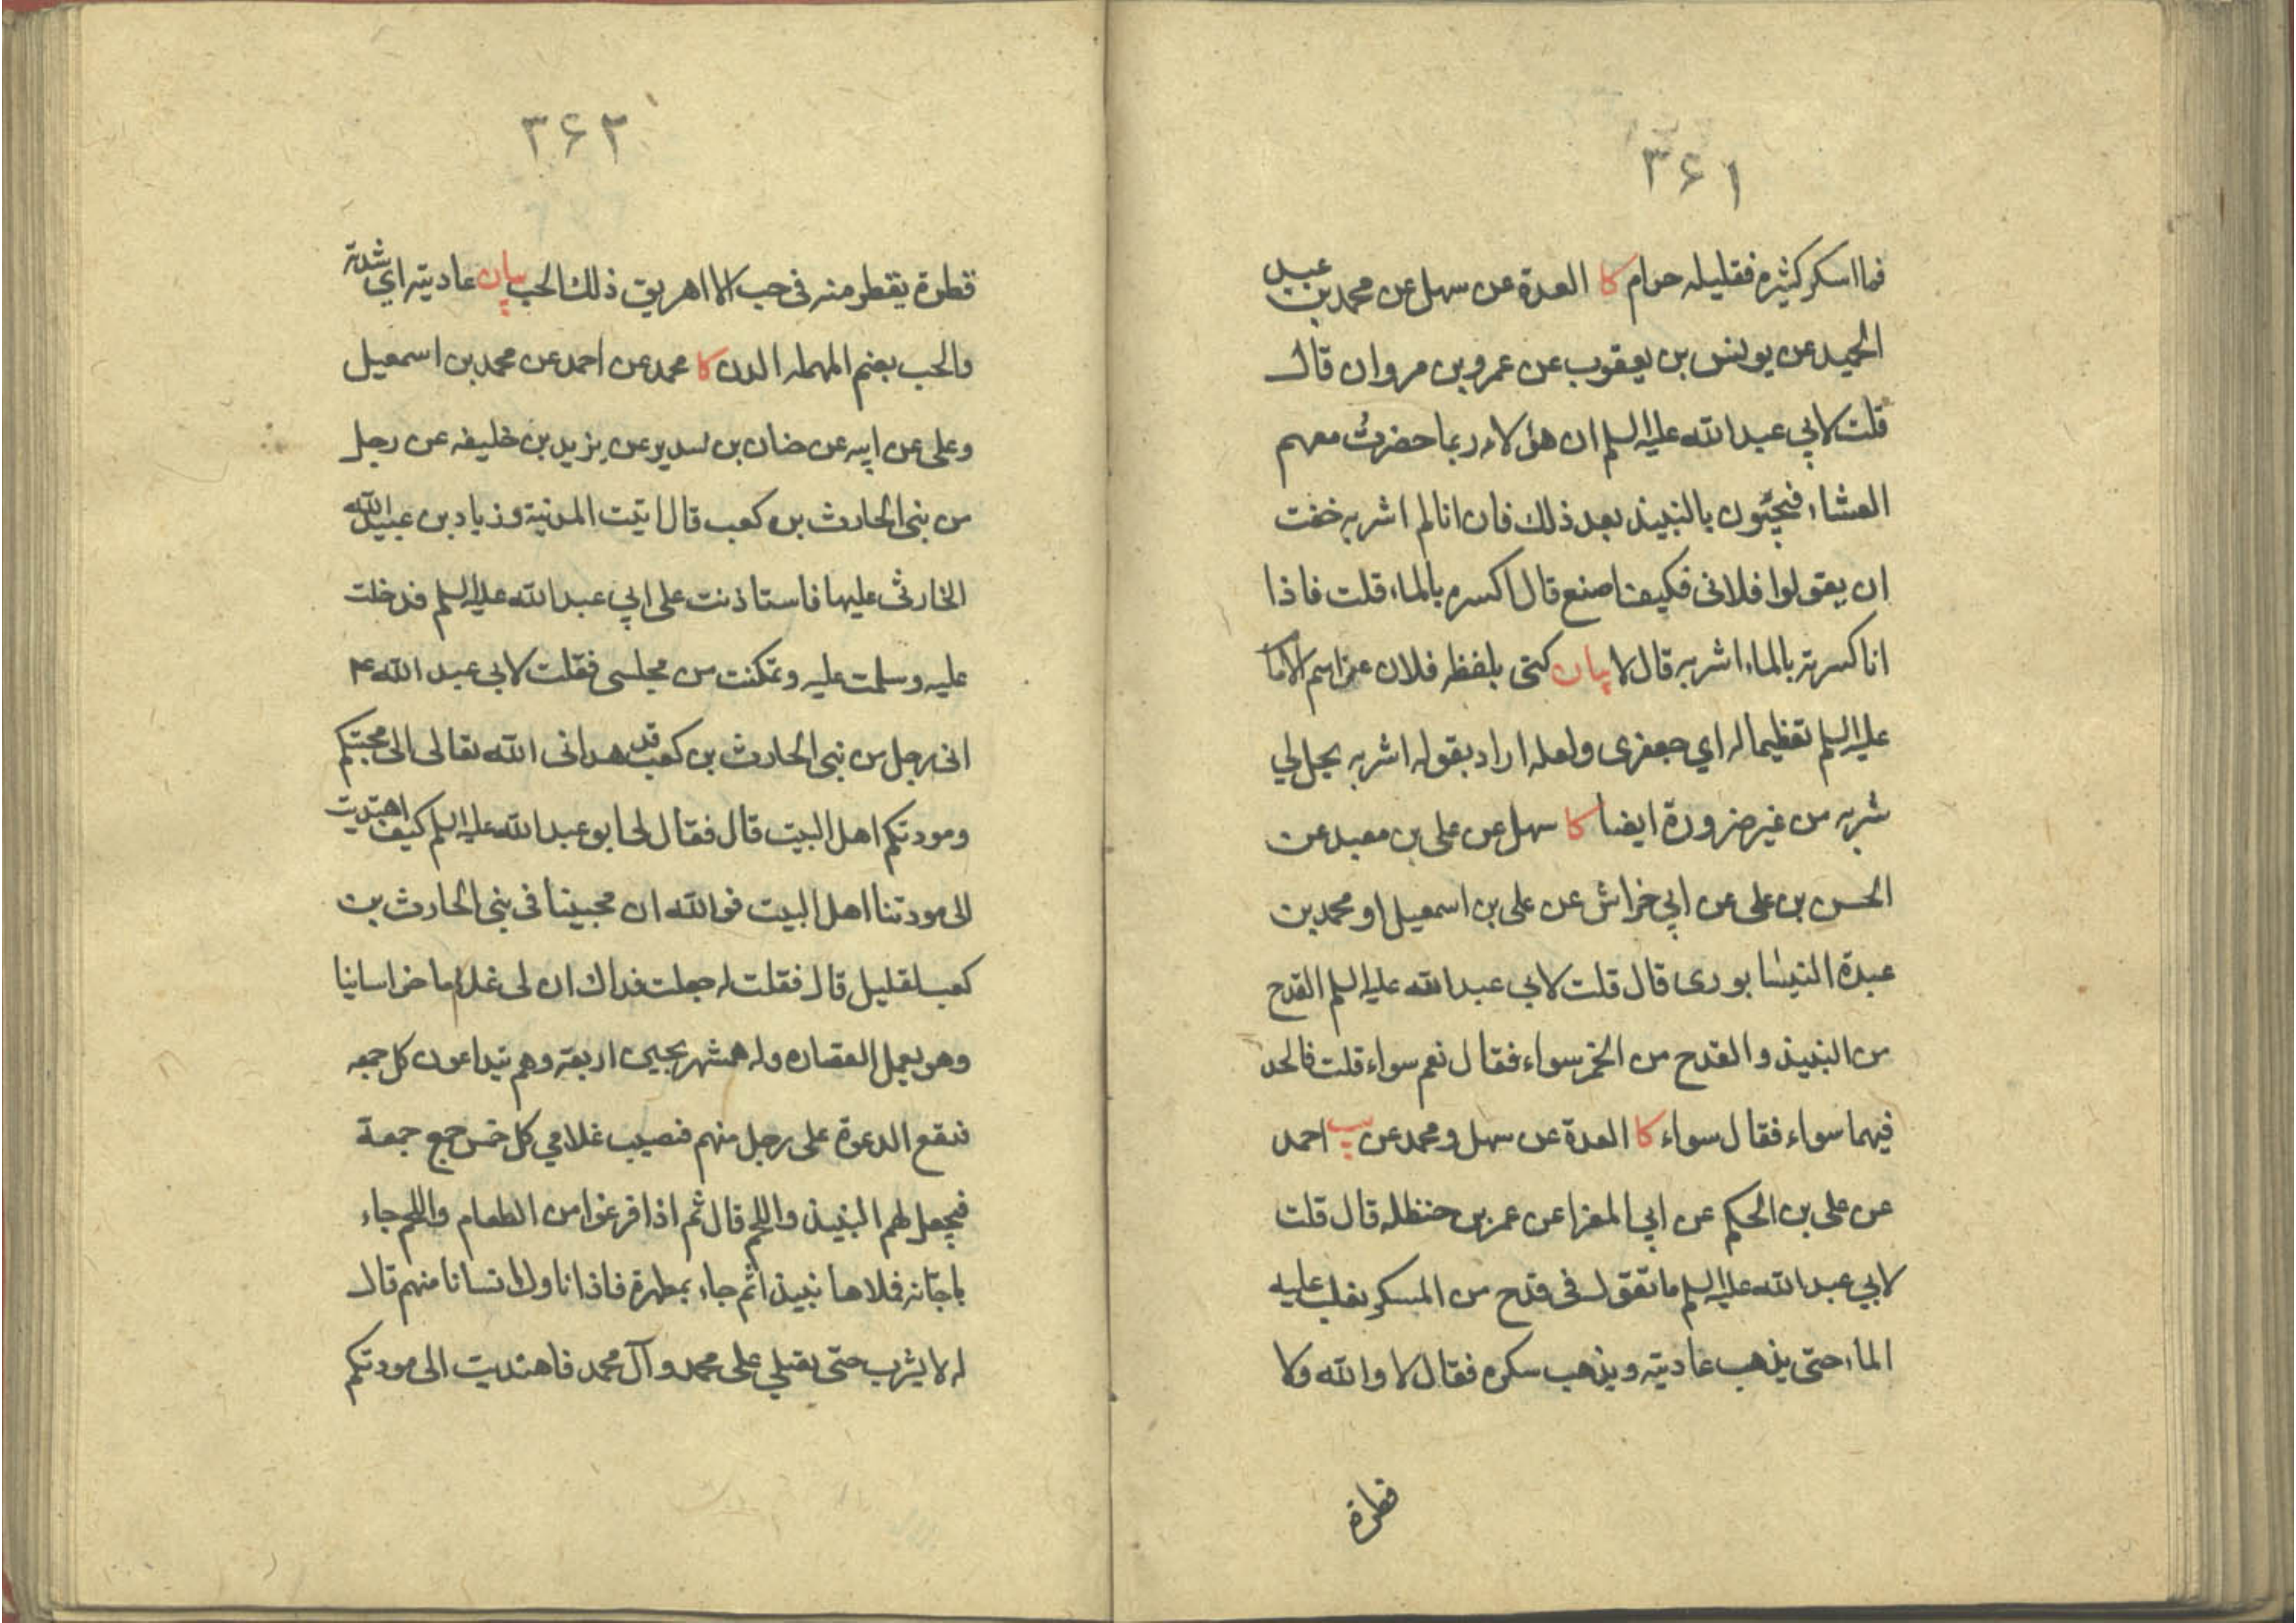 ۳۶۱
فما اسكر كثيره فقليله حرام كا العدة عن سهل عن محمد بن عبد
الحميد عن يونس بن يعقوب عن عمرو بن مروان قال
قلت لابي عبد الله عليه السلم ان هؤلاء ربما حضرت معهم
العشاء فيجيئون بالنبيذ بعد ذلك فان انا لم اشربه خفت
ان يقولوا فلانى فكيف اصنع قال اكسره بالماء قلت فاذا
انا كسرته بالماء اشربه قال لا بيان كنى بلفظه فلان عن اسم الامام
عليه السلم تعظيما له اي جعفرى ولعله اراد بقوله اشربه يحل لي
شربه من غير ضرورة ايضا كا سهل عن على بن معبد عن
الحسن بن على عن ابي خراش عن على بن اسمعيل او محمد بن
عبدة النيشابورى قال قلت لابي عبد الله عليه السلم القدح
من النبيذ و القدح من الخمر سواء فقال نعم سواء قلت فالحد
فيهما سواء فقال سواء كا العدة عن سهل و محمد عن احمد
عن على بن الحكم عن ابي المعزا عن عمر بن حنظله قال قلت
لابي عبد الله عليه السلم ما تقول فى قدح من المسكر يغلب عليه
الماء حتى يذهب عاديته و يذهب سكره فقال لا والله ولا
قطرة
۳۶۲
قطرة يقطر منه فى حب الا اهريق ذلك الحب بيان عاديته اي شدته
والحب بضم المهمله الدن كا محمد عن احمد عن محمد بن اسمعيل
وعلى عن ابيه عن حنان بن سدير عن يزيد بن خليفه عن رجل
من بنى الحارث بن كعب قال اتيت المدنية و زياد بن عبيد الله
الحارثى عليها فاستاذنت على ابي عبد الله عليه السلم فدخلت
عليه وسلمت عليه و تمكنت من مجلسى فقلت لابي عبد الله ع
انى رجل من بنى الحارث بن كعب قد هدانى الله تعالى الى محبتكم
ومودتكم اهل البيت قال فقال لى ابو عبد الله عليه السلم كيف اهتديت
الى مودتنا اهل البيت فوالله ان محبينا فى بنى الحارث بن
كعب لقليل قال فقلت له جعلت فداك ان لى غلاما خراسانيا
وهو يعمل القصاره وله همشهريجين اربعة وهم يتداعون كل جمعه
فيقع الدعوة على رجل منهم فيصيب غلامي كل خمس جمع جمعة
فيجعل لهم النبيذ واللحم قال ثم اذا فرغوا من الطعام واللحم جاء
باجانه فملاها نبيذا ثم جاء بمطهرة فاذا ناول انسانا منهم قال
له لا يشرب حتى يصلي على محمد و آل محمد فاهتديت الى مودتكم